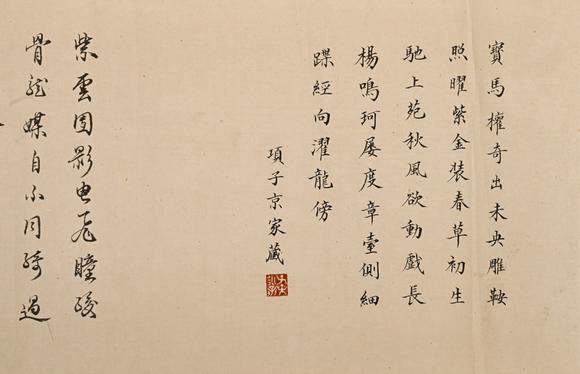 寶馬權奇出未央雕鞍
照曜紫金装春草初生
馳上苑秋風欲動戲長
楊鳴珂屡度章臺側細
蹀經向濯龍傍
項子京家藏
紫雲團影電飛瞳駿
骨龍媒自不同騎過